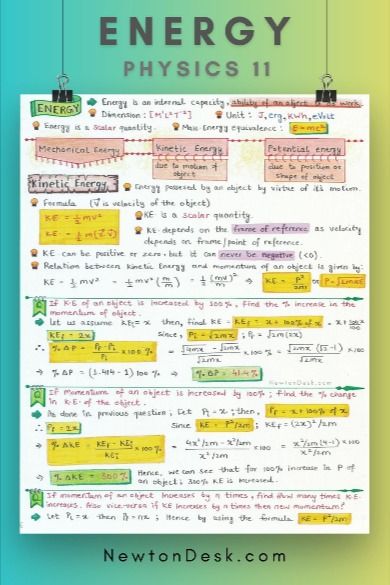 ENERGY
PHYSICS 11
ENERGY → Energy is an internal capacity, ability of an object to do work.
Dimension : [M¹L²T⁻²] Unit : J, erg, KWh, eVolt
Energy is a scalar quantity. Mass Energy equivalence : E=mc²
Mechanical Energy Kinetic Energy Potential energy
due to motion of object due to position or shape of object
Kinetic Energy Energy possessed by an object by virtue of its motion.
Formula (v⃗ is velocity of the object)
KE = ½mv² KE is a scalar quantity.
KE = ½m(v⃗.v⃗) KE depends on the frame of reference as velocity
depends on frame/point of reference.
KE can be positive or zero, but it can never be negative (<0).
Relation between kinetic Energy and momentum of an object is given by:
KE = ½mv² = ½mv²(m/m) = ½(mv)²/m ⇒ KE = P²/2m or P=√2mKE
Q If K.E of an object is increased by 100%, find the % increase in the
momentum of object.
→ let us assume KEi = x then, find KE = KEf = x + 100% of x = x + 100x/100
∴ KEf = 2x Since, Pi = √2mx ; Pf = √2m(2x)
∴ %ΔP = (Pf-Pi)/Pi x100% = (√4mx - √2mx)/√2mx x100% = √2mx(√2-1)/√2mx x100
⇒ %ΔP = (1.414-1)100% ⇒ %ΔP = 41.4%
NewtonDesk.com
Q If Momentum of an object is increased by 100%; find the % change
in K.E. of the object.
→ As done in previous question; Let Pi = x; then, Pf = x + 100% of x
∴ Pf = 2x Since KE = P²/2m ; KEf = (2x)²/2m
⇒ %ΔKE = (KEf-KEi)/KEi x100% = (4x²/2m - x²/2m)/(x²/2m) x100 = x²/2m(4-1)/(x²/2m) x100
⇒ %ΔKE = 300% Hence, we can see that for 100% increase in P of
an object; 300% KE is increased.
Q If momentum of an object increases by n times, find how many times K.E.
increases. Also vice-versa if KE increases by n times then new momentum?
→ let Pi = x then Pf = nx ; Hence by using the formula KE = P²/2m
NewtonDesk.com